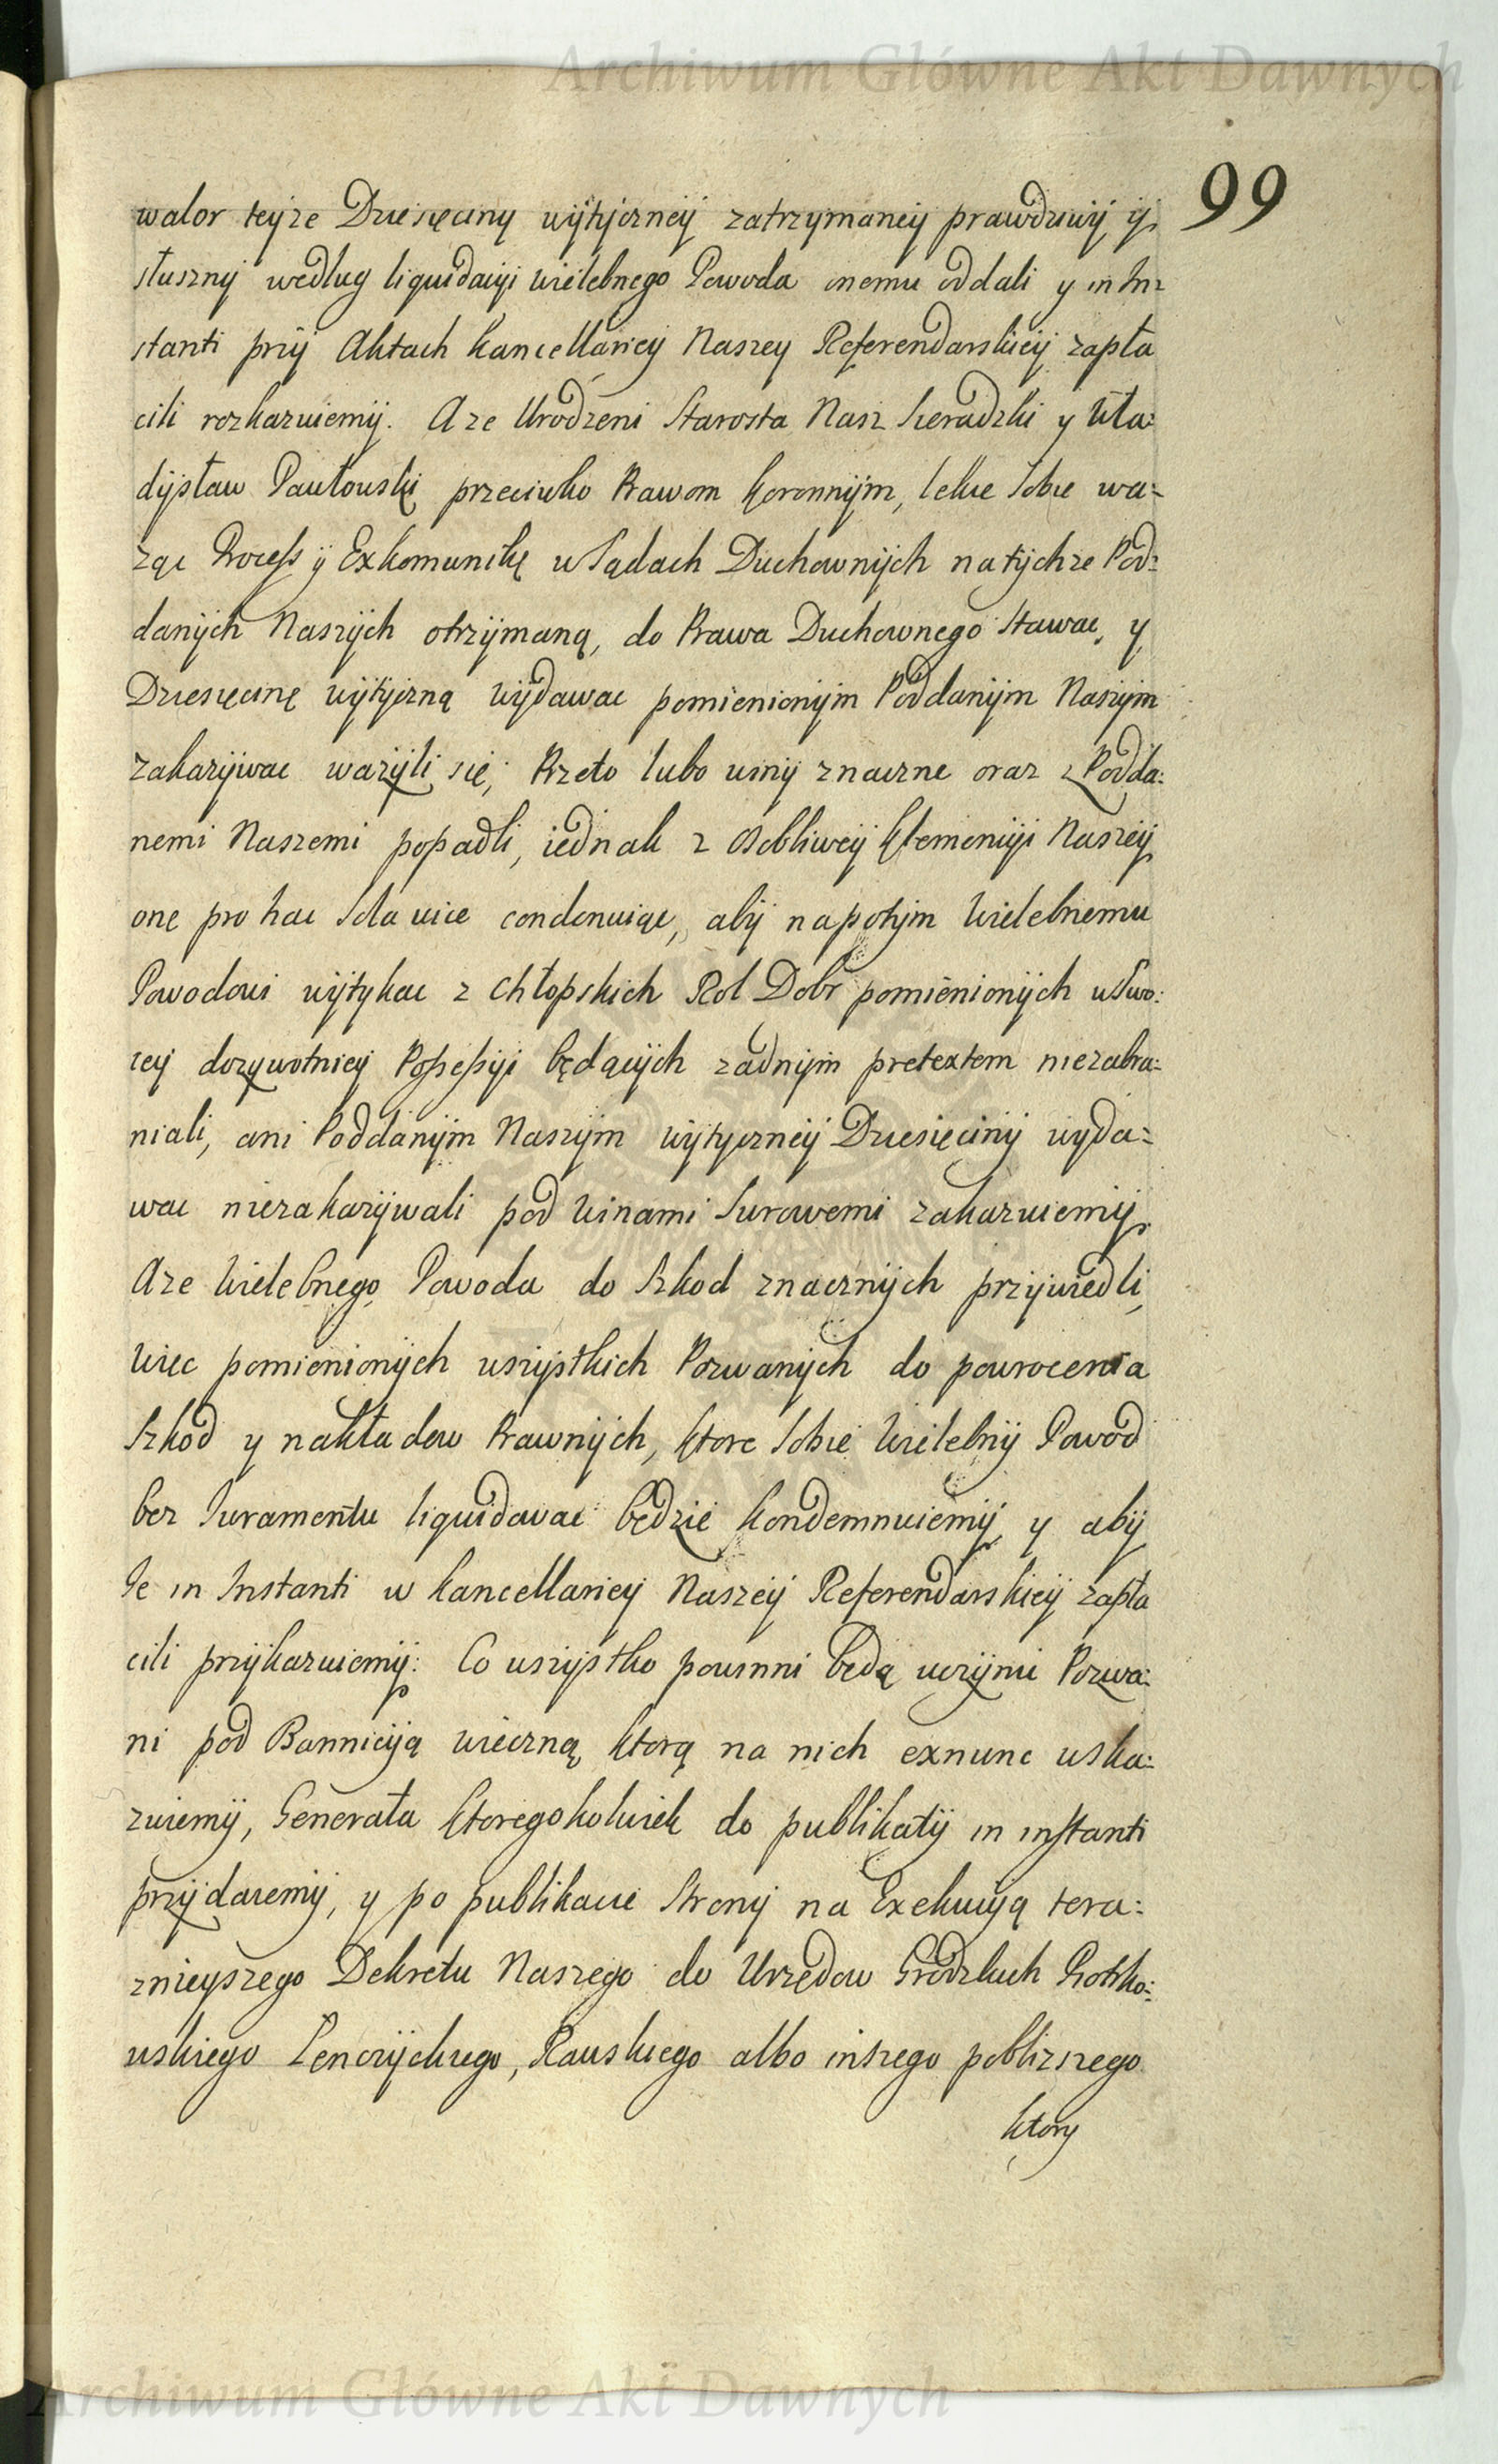 Archiwum Główne Akt Dawnych
99
walor teyze Dziesięciny wÿtÿcznéÿ zatrzymaneÿ prawdziwÿ ÿ
słusznÿ według liquidacÿi Wielebnego Powoda onemu oddali y in In=
stanti przÿ Aktach Kancellarieÿ Naszey Referendarskieÿ zapła
cili rozkazuiemÿ. A ze Urodzeni Starosta Nasz Sieradzki y Wła=
dÿsław Pawłowski przeciwko Prawom Koronnÿm, lekce Sobie wa=
ząc Process ÿ Exkomunikę w Sądach Duchownÿch na tÿchze Pod=
danÿch Naszÿch otrzÿmaną, do Prawa Duchownego Stawac, y
Dziesięcinę wÿtÿczną wÿdawac pomienionÿm Poddanÿm Naszÿm
zakazÿwac wazÿli się; Przeto lubo winÿ znaczne oraz z Podda=
nemi Naszemi popadli, iednak z osobliweÿ Klemencÿi Naszéÿ
onę pro hac Sola vice condonuiąc, abÿ napotÿm Wielebnemu
Powodowi wÿtykac z Chłopskich Rol Dobr pomienionÿch w Swo=
iey dozywotniey Possessÿi będącÿch zadnÿm pretextem niezabra=
niali, ani Poddanÿm Naszÿm wÿtyczneÿ Dziesięcinÿ wyda=
wac niezakazÿwali pod Winami Surowemi zakazuiemÿ.
A ze Wielebnego Powoda do Szkod znacznÿch przÿwiedli,
Więc pomienionÿch wszÿstkich Pozwanÿch do powrocenia
Szkod y nakładow Prawnÿch, ktore Sobie Wielebnÿ Powod
bez Juramentu liquidowac będzie kondemnuiemÿ, y abÿ
Je in Instanti w Kancellarieÿ Naszéÿ Referendarskieÿ zapła
cili przÿkazuiemÿ: Co wszÿstko powinni będą uczÿnic Pozwa=
ni pod Bannicÿą wieczną, ktorą na nich exnunc wska=
zuiemÿ, Generała ktoregokolwiek do publikatÿ in instanti
przÿdaiemÿ, y po publikacie Stronÿ na Exekucÿą tera=
znieyszego Dekretu Naszego do Urzędow Grodzkich Piotrko=
wskiego Lenczÿckiego, Rawskiego albo inszego poblizszego
ktory
Archiwum Główne Akt Dawnych